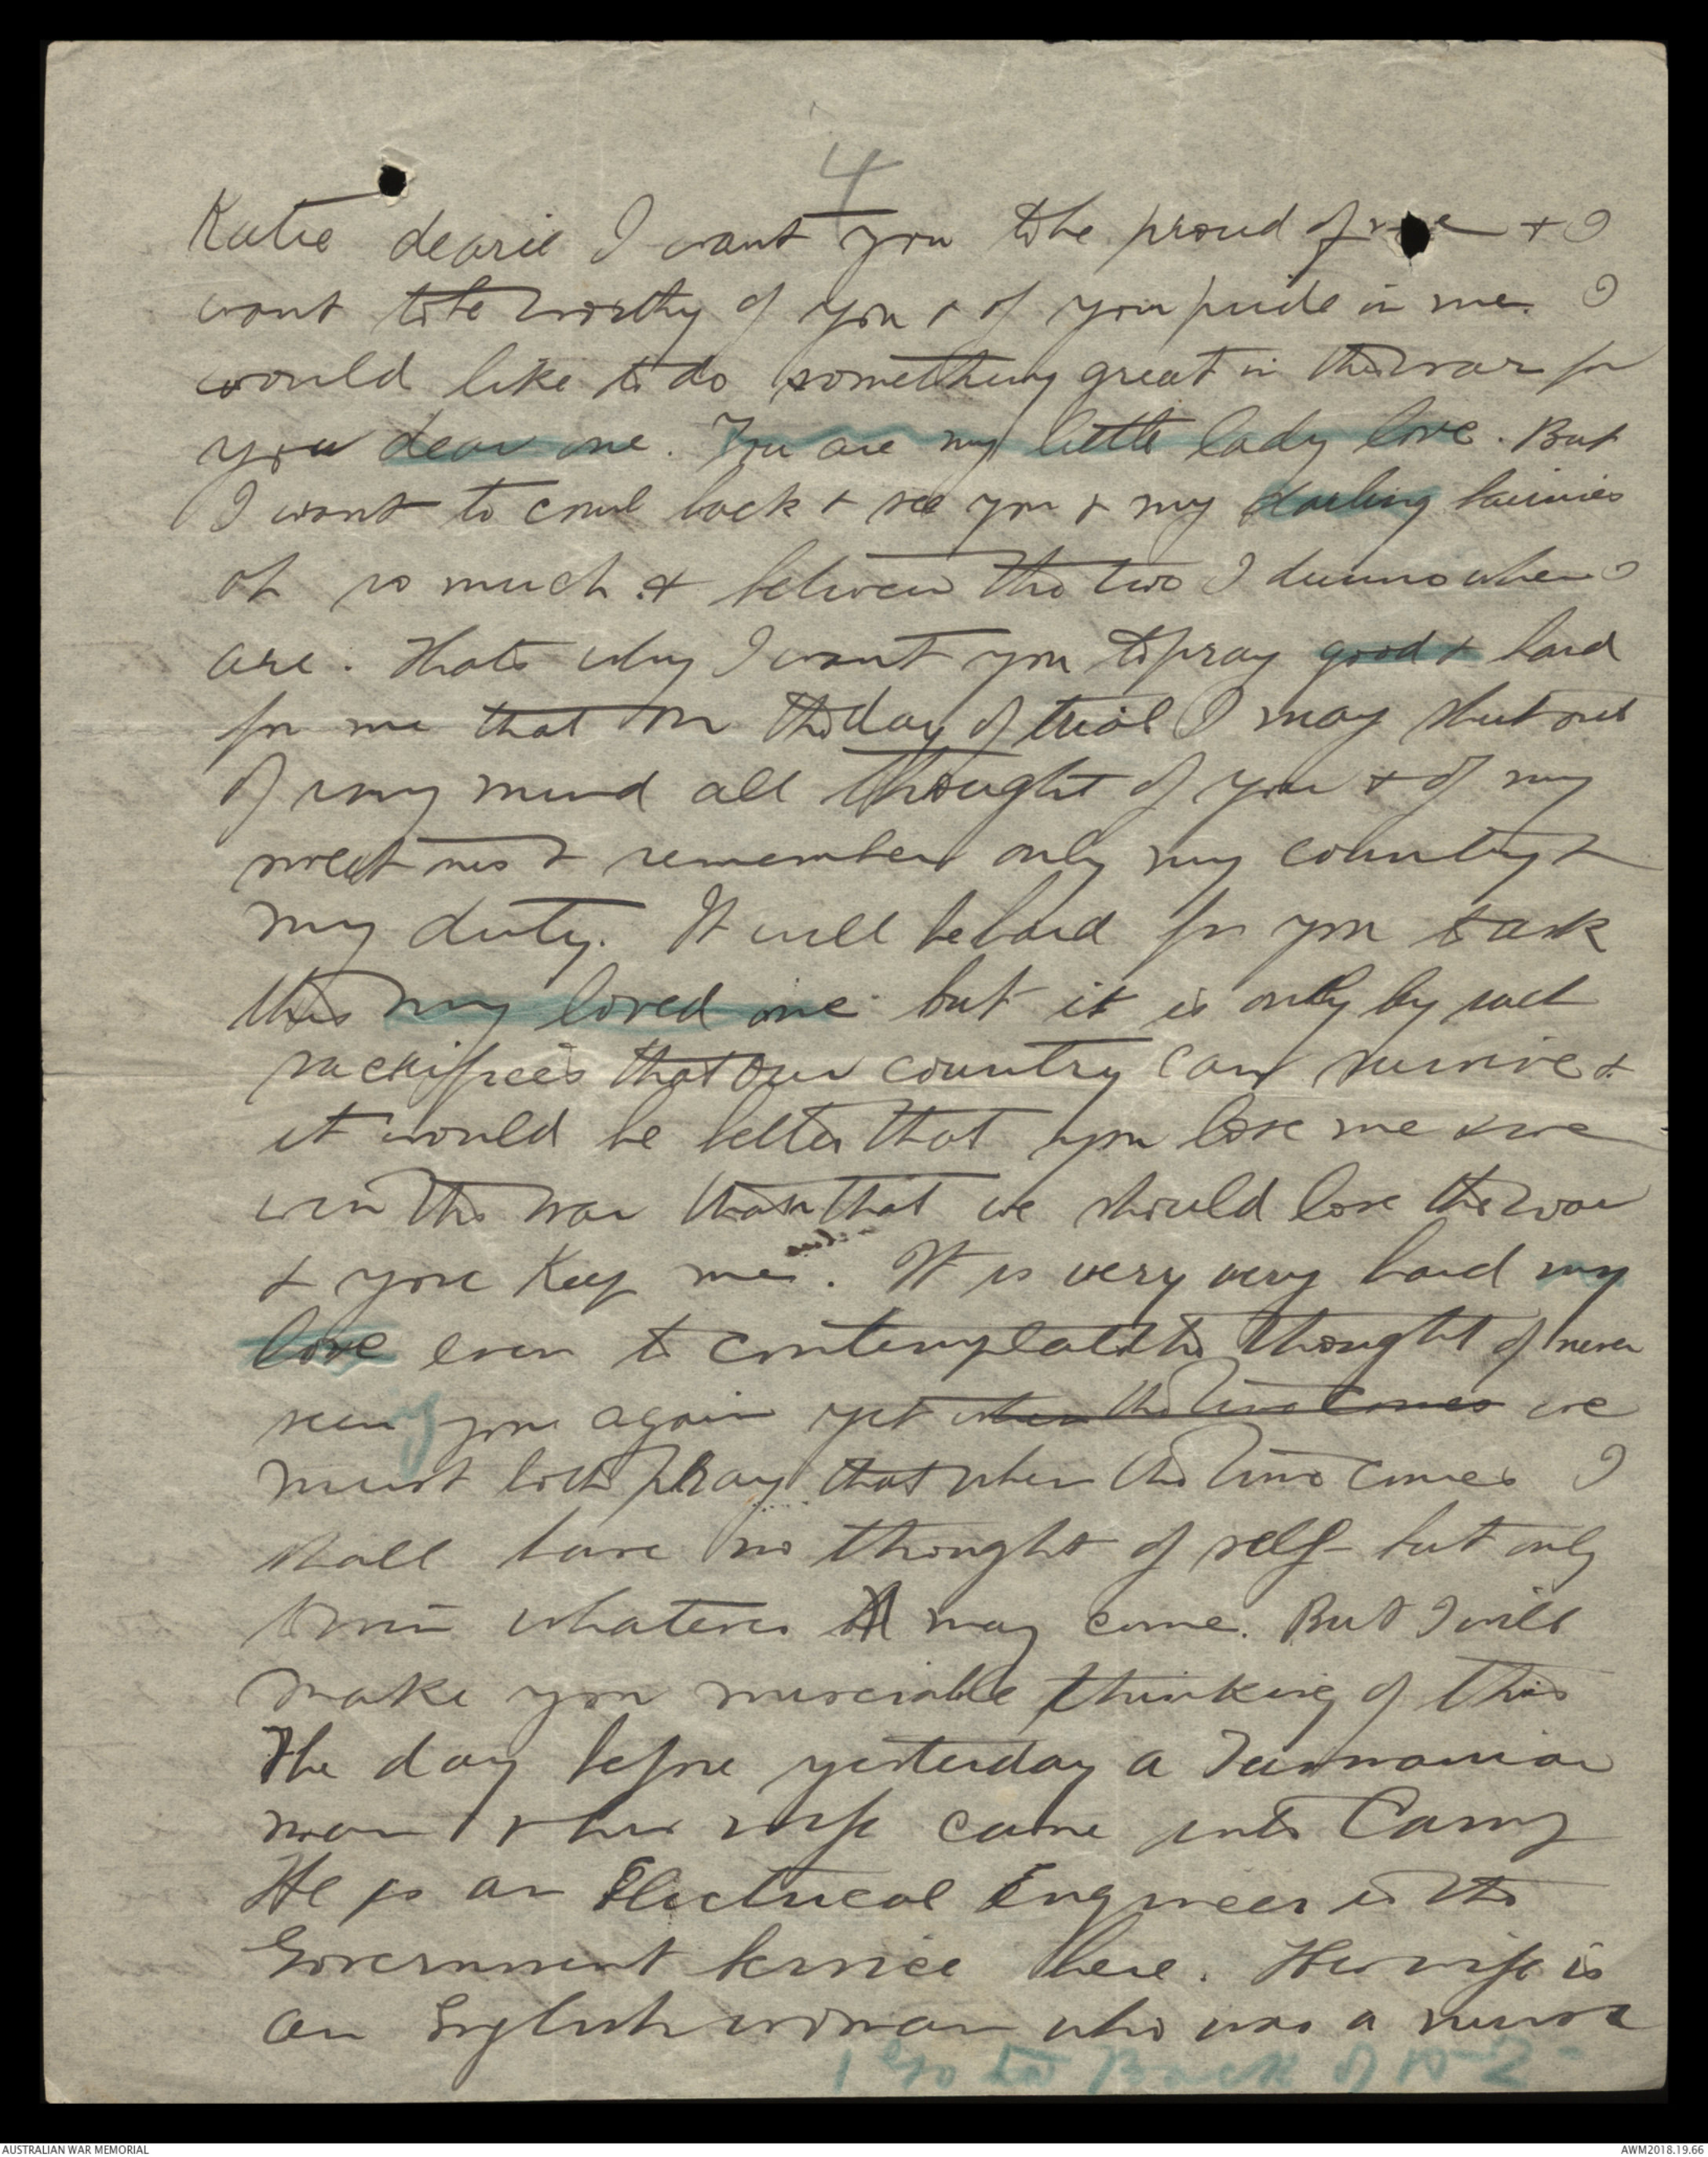 4
Katie dearie I want you to be proud of me + I
want to be worthy of you + of your pride in me. I
would like to do something great in this war for
you dear one. You are my little lady love. But
I want to come back + see you + my darling bairnies
oh so much & between the two I dunno where I
are. Thats why I want you to pray good & hard
for me that on the day of trial I may shut out
of my mind all thought of you + of my
sweet nest & remember only my country &
my duty. It will be hard for you to ask
this my loved one but it is only by such
sacrifices that our country can survive &
it would be better that you lose me & we
win the war than that we should lose the war
& you keep me. It is very very hard my
love even to contemplate the thought of never
seeing you again yet when the time comes we
must both pray that when the time comes I
shall have no thought of self but only
to win whatever may come. But I will
make you miserable thinking of this
The day before yesterday a Tasmanian
man & his wife came into Camp
He is an Electrical Engineer in the
Government Service here. His wife is
an English woman who was a nurse
Go to Back of No 2
AUSTRALIAN WAR MEMORIAL
AWM2018.19.66